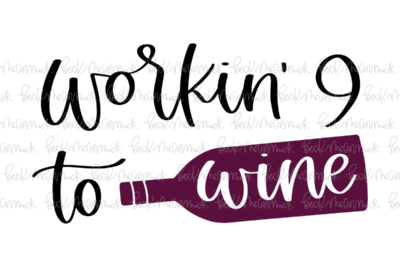 workin' 9
to wine